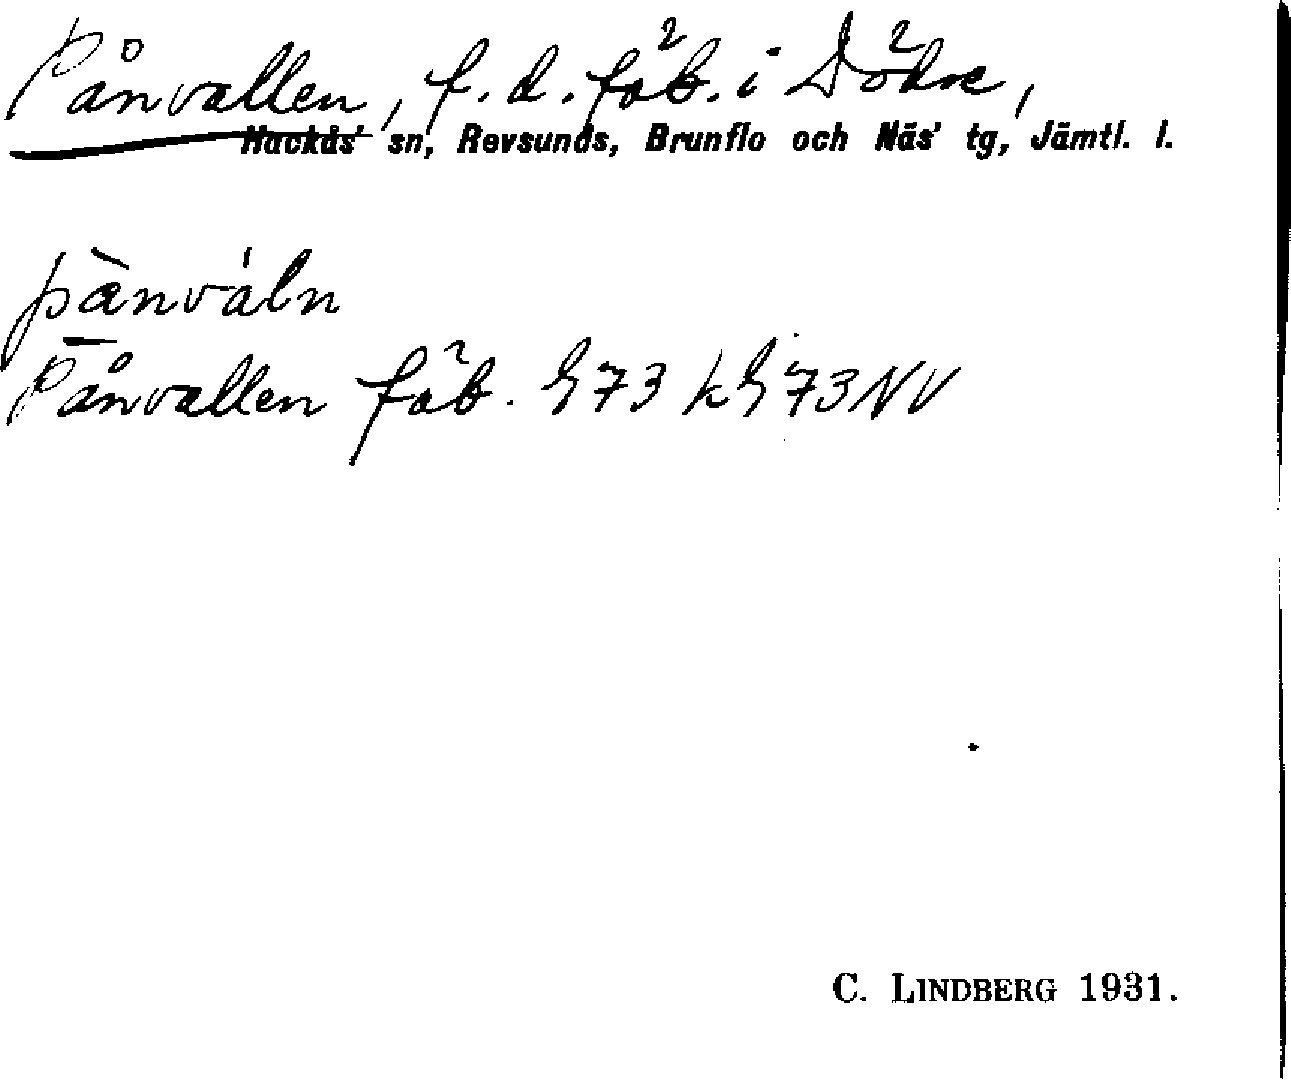 Pånvallen, f. d. fäb. i Dödre,
Hackås' sn, Revsunds, Brunflo och Näs' tg, Jämtl. l.
pànváln
Pånvallen fäb. G73 kG73NV
C. LINDBERG 1931.